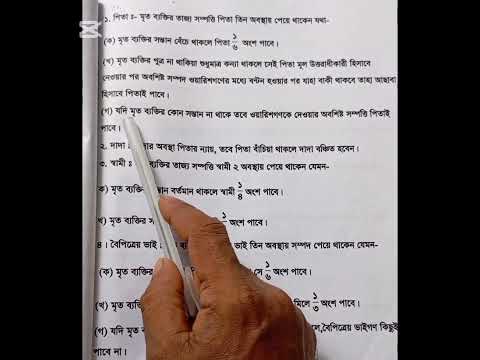 ১. পিতা ঃ- মৃত ব্যক্তির ত্যজ্য সম্পত্তি পিতা তিন অবস্থায় পেয়ে থাকেন যথা-
(ক) মৃত ব্যক্তির সন্তান বেঁচে থাকলে পিতা ১/৬ অংশ পাবে।
(খ) মৃত ব্যক্তির পুত্র না থাকিয়া শুধুমাত্র কন্যা থাকলে সেই পিতা মূল উত্তরাধীকারী হিসাবে
দেওয়ার পর অবশিষ্ট সম্পদ ওয়ারিশগণের মধ্যে বন্টন হওয়ার পর যাহা বাকী থাকবে তাহা আছাবা
হিসাবে পিতাই পাবে।
(গ) যদি মৃত ব্যক্তির কোন সন্তান না থাকে তবে ওয়ারিশগণকে দেওয়ার অবশিষ্ট সম্পত্তি পিতাই
পাবে।
২. দাদা ঃ অবস্থা পিতার ন্যায়, তবে পিতা বাঁচিয়া থাকলে দাদা বঞ্চিত হবেন।
৩. স্বামী ঃ ব্যক্তির ত্যজ্য সম্পত্তি স্বামী ২ অবস্থায় পেয়ে থাকেন যেমন-
ক) মৃত ব্যক্তির সন্তান বর্তমান থাকলে স্বামী ১/৪ অংশ পাবে।
খ) মৃত ব্যক্তির অংশ পাবে।
৪। বৈপিত্রেয় ভাই তিন অবস্থায় সম্পদ পেয়ে থাকেন যেমন-
(ক) মৃত ব্যক্তির সে ১/৬ অংশ পাবে।
(খ) মৃত ব্যক্তি মিলে ১/৩ অংশ পাবে।
(গ) যদি মৃত বৈপিত্রেয় ভাইগণ কিছুই
পাবে না।